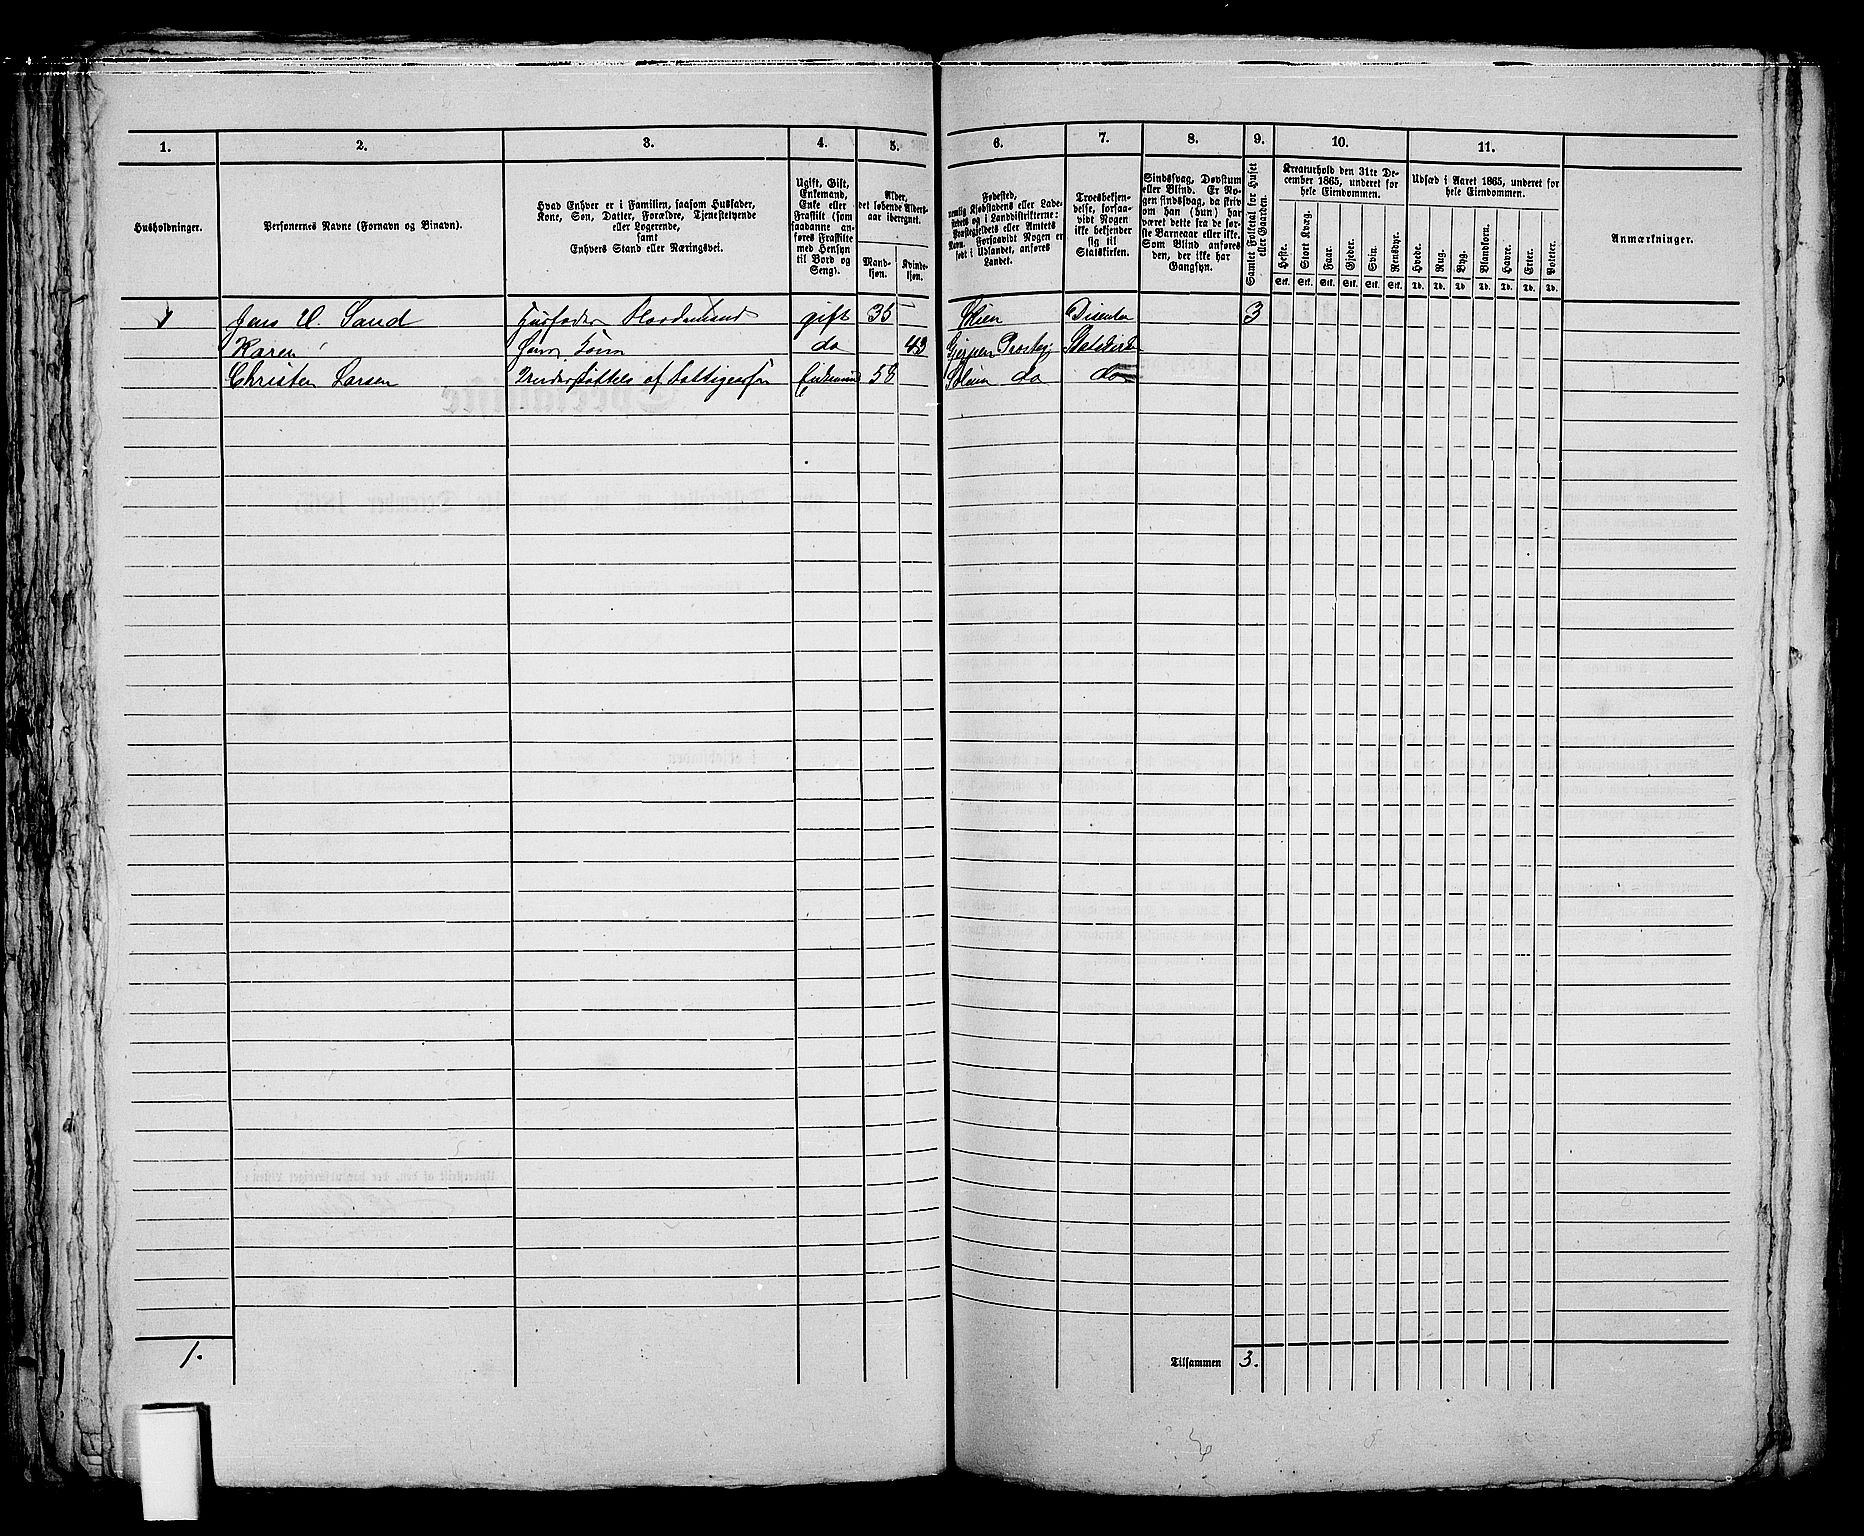 1. 2. 3. 4. 5. 6. 7. 8. 9. 10. 11.
Husholdninger.
Personernes Navne (Fornavn og Binavn).
Hvad Enhver er i Familien, saasom Husfader,
Kone, Søn, Datter, Forældre, Tjenestetyende
eller Logerende,
samt
Enhvers Stand eller Næringsvei.
Ugift, Gift,
Enkemand,
Enke eller
Fraskilt (som
saadanne an-
føres Fraskilte
med Hensyn
til Bord og
Seng).
Alder,
det løbende Alders-
aar iberegnet.
Mand-
kjøn.
Kvinde-
kjøn.
Fødested,
nemlig Kjøbstadens eller Lade-
stedets og i Landdistrikterne:
Præstegjeldets eller Amtets
Navn. Forsaavidt Nogen er
født i Udlandet, anføres
Landet.
Troesbekjen-
delse, forsaa-
vidt Nogen
ikke bekjender
sig til
Statskirken.
Sindssvag, Døvstum
eller Blind. Er No-
gen sindssvag, da skriv
om han (hun) har
været dette fra de før-
ste Barneaar eller ikke.
Som Blind anføres
den, der ikke har
Gangsyn.
Samlet Folketal for Huset
eller Gaarden.
Kreaturhold den 31te De-
cember 1865, underet for
hele Eiendommen.
Heste. Stort Kvæg. Faar. Gjeder. Svin. Rensdyr.
Stk. Stk. Stk. Stk. Stk. Stk.
Udsæd i Aaret 1865, underet for
hele Eiendommen.
Hvede. Rug. Byg. Blandkorn. Havre. Erter. Poteter.
Td. Td. Td. Td. Td. Td. Td.
Anmærkninger.
Jens Sand Husfader gift 35 Skien Disenter 3
Karen hans Kone do 43 Gjerpen Præstegj Statskirke
Christen Larsen Understøttes af Fattigcassen Enkemand 58 Solum do do
1.
Tilsammen 3.